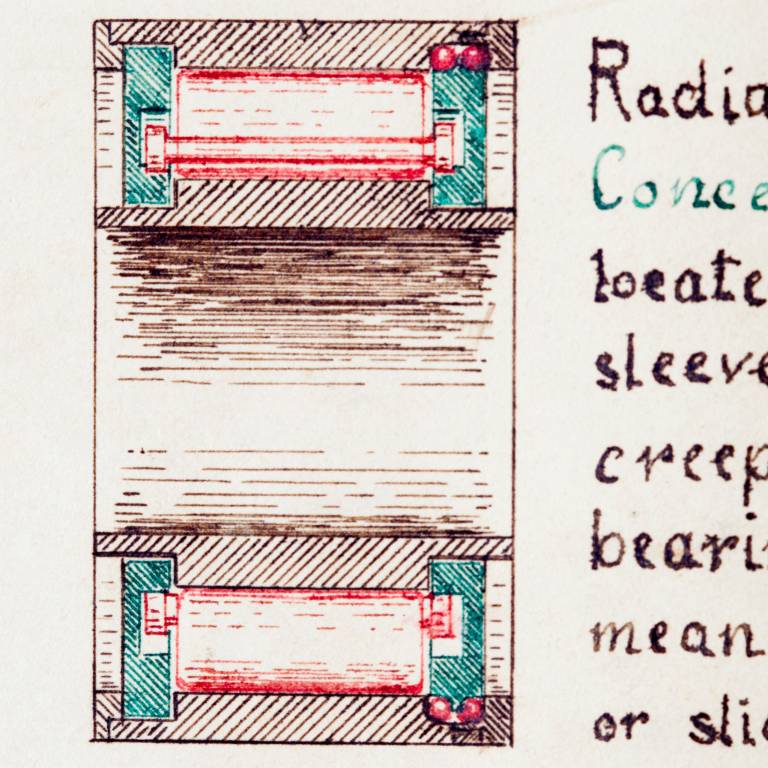 Radia
Conce
locate
sleeve
creep
beari
mean
or slid